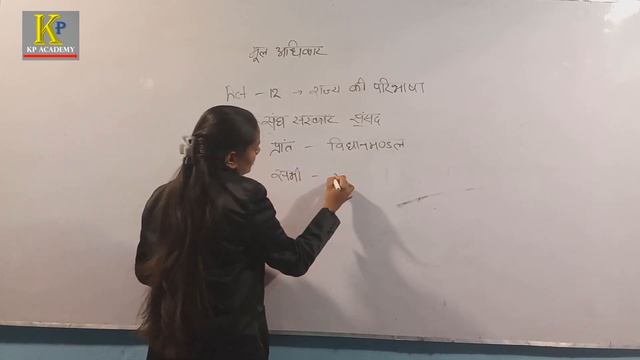 KP
KP ACADEMY
मूल अधिकार
Art - 12 → राज्य की परिभाषा
संघ सरकार संसद
प्रांत - विधानमण्डल
सभी -